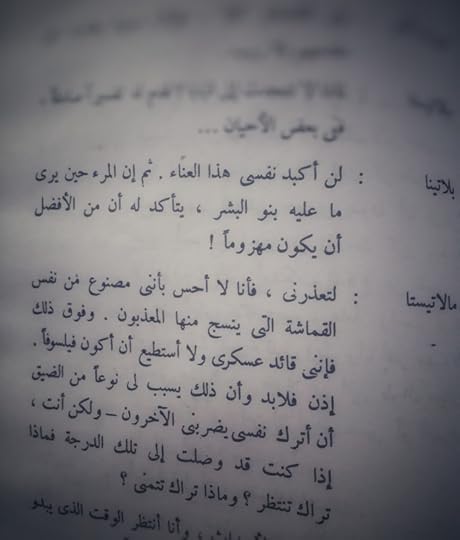 فى بعض الأحيان ...
بلاتينا : لن أكبد نفسى هذا العناء . ثم إن المرء حين يرى
ما عليه بنو البشر ، يتأكد له أن من الأفضل
أن يكون مهزوماً !
مالاتيستا : لتعذرنى ، فأنا لا أحس بأننى مصنوع من نفس
القماشة التى ينسج منها المعذبون . وفوق ذلك
فإننى قائد عسكرى ولا أستطيع أن أكون فيلسوفاً .
إذن فلابد وأن ذلك يسبب لى نوعاً من الضيق
أن أترك نفسى يضربنى الآخرون – ولكن أنت ،
إذا كنت قد وصلت إلى تلك الدرجة فماذا
تراك تنتظر ؟ وماذا تراك تتمنى ؟
، وأنا أنتظر الوقت الذى يبدو